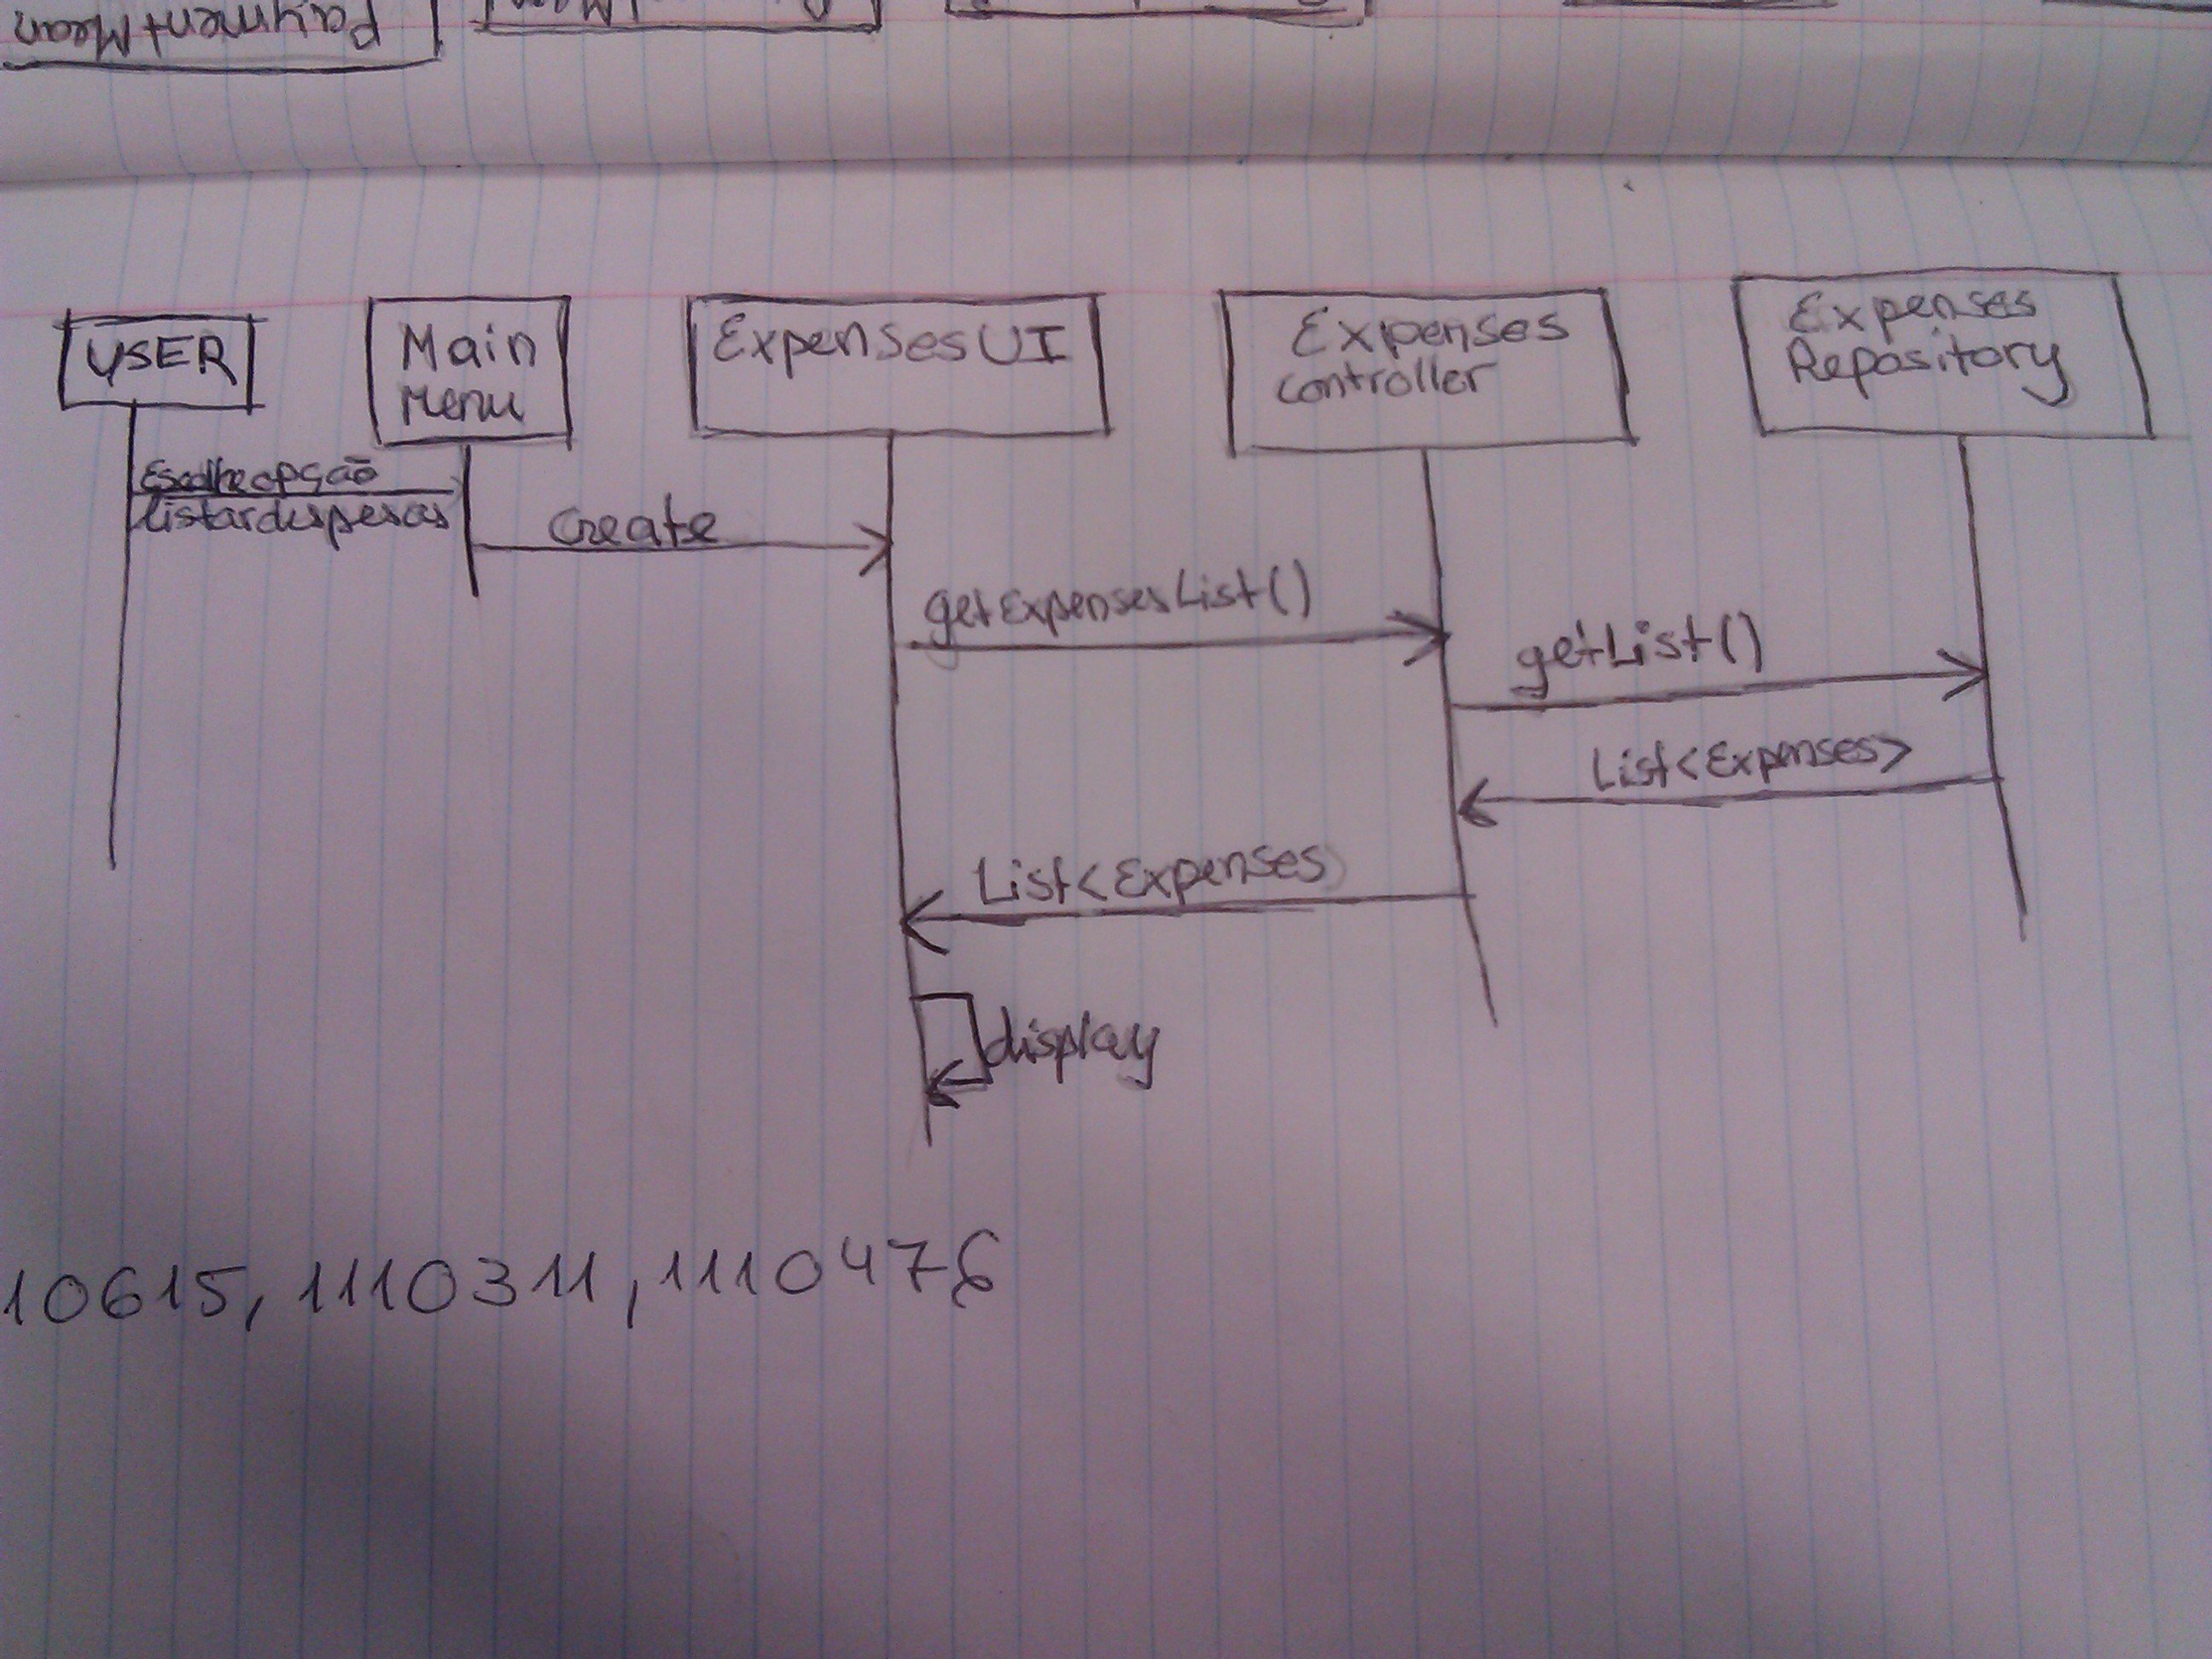 PaymentMean
USER
Main
Menu
ExpensesUI
Expenses
controller
Expenses
Repository
Escolhe opção
listar despesas
create
getExpensesList()
getList()
List<Expenses>
List<Expenses
display
10615, 1110311, 1110476